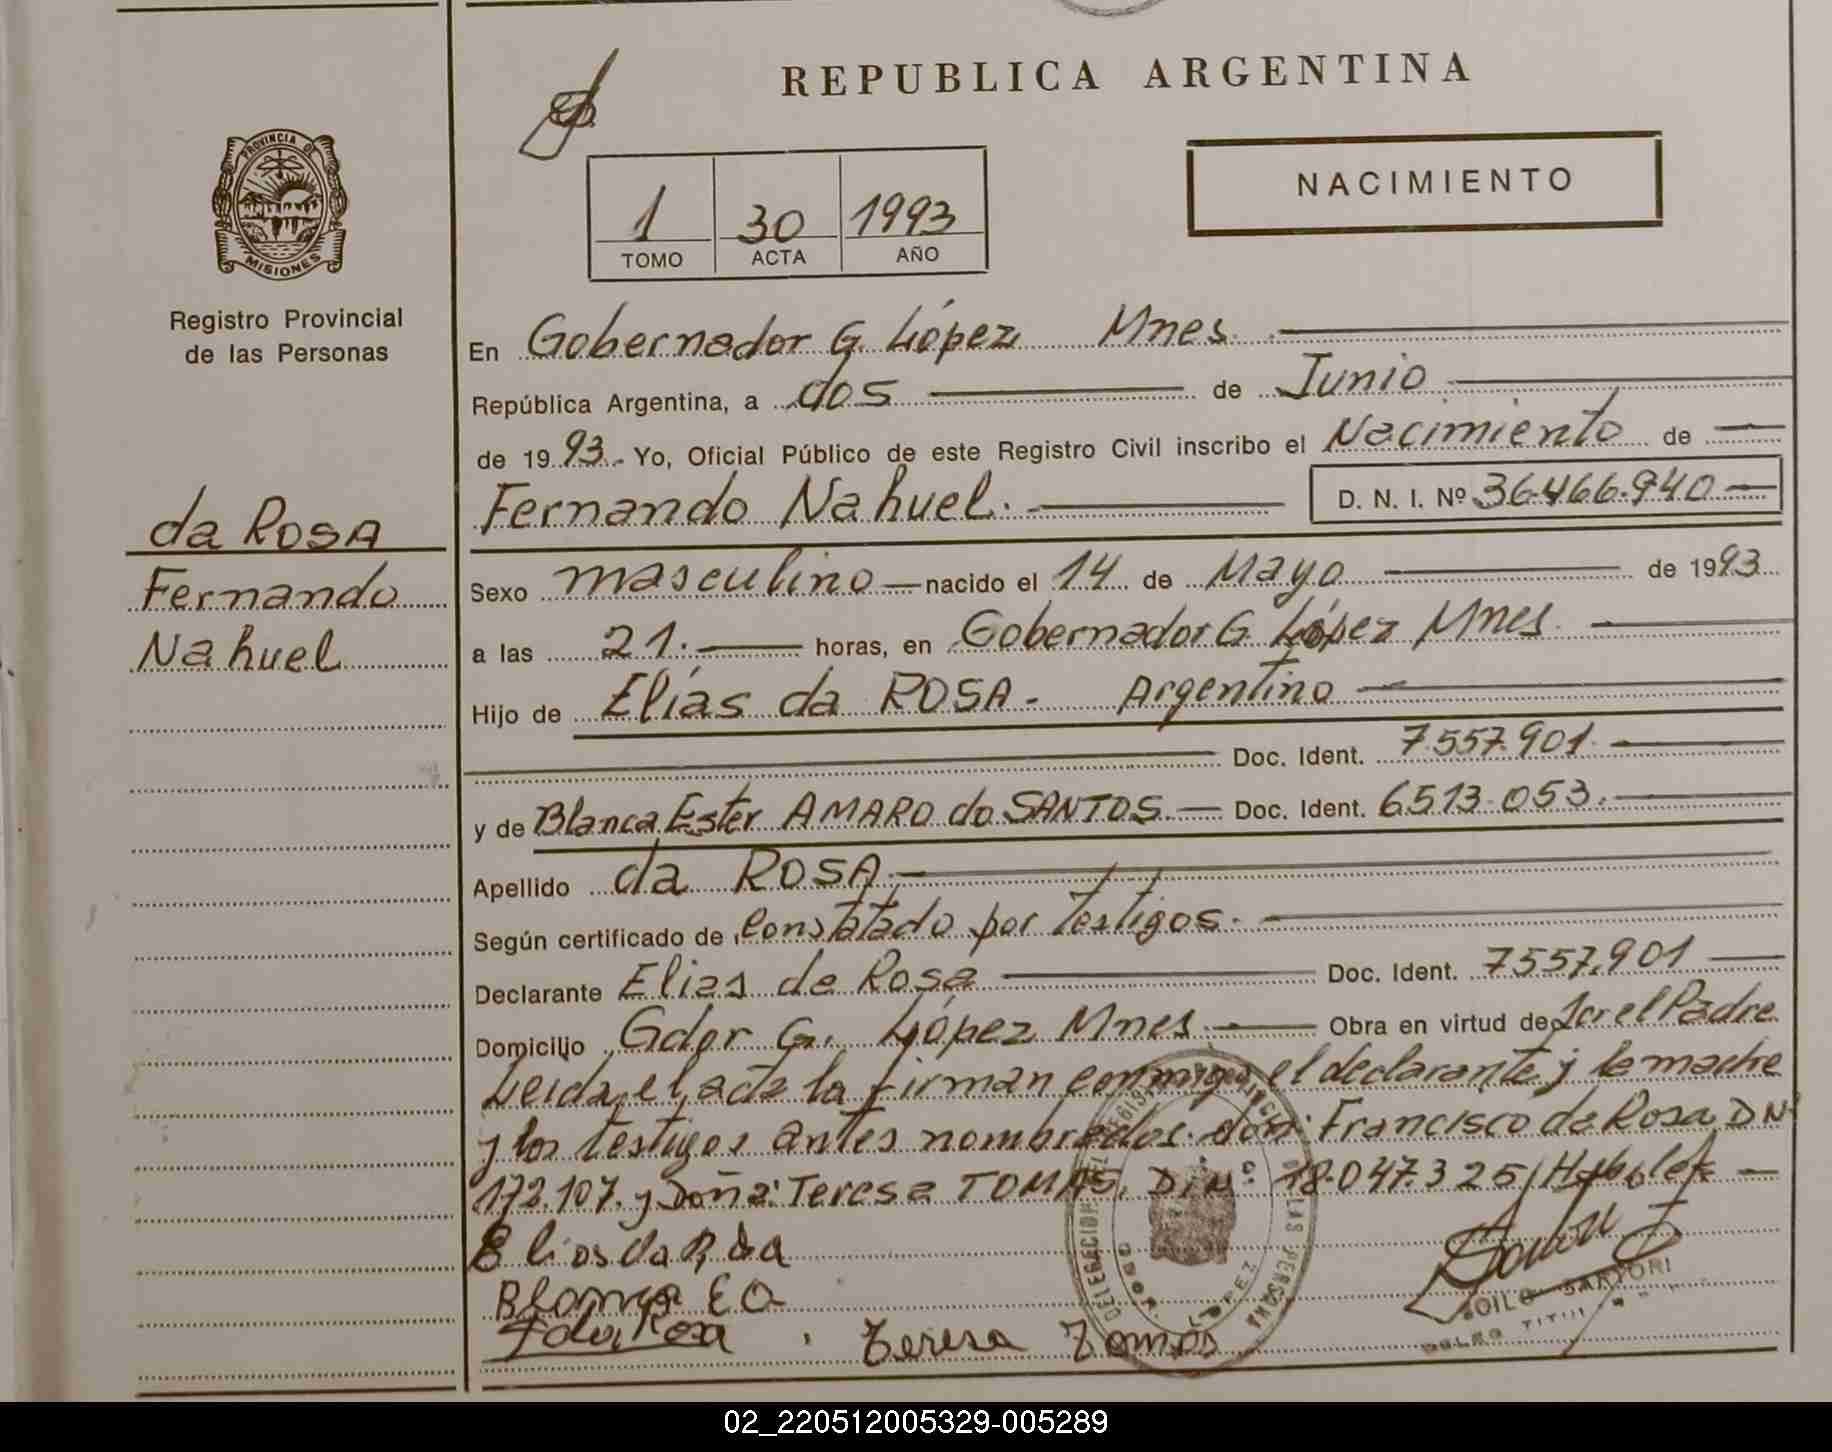 REPUBLICA ARGENTINA
NACIMIENTO
1 30 1993
TOMO ACTA AÑO
PROVINCIA DE
MISIONES
Registro Provincial
de las Personas
da ROSA
Fernando
Nahuel
En Gobernador G. López Mnes.
República Argentina, a dos de Junio
de 1993. Yo, Oficial Público de este Registro Civil inscribo el Nacimiento de
Fernando Nahuel. D. N. I. Nº 36.466.940
Sexo masculino nacido el 14 de Mayo de 1993
a las 21. horas, en Gobernador G. López Mnes.
Hijo de Elías da ROSA. Argentino
Doc. Ident. 7.557.901.
y de Blanca Ester AMARO do SANTOS Doc. Ident. 6.513.053.
Apellido da ROSA
Según certificado de Constatado por testigos.
Declarante Elias da Rosa Doc. Ident. 7.557.901
Domicilio Gdor G. López Mnes. Obra en virtud de Ser el Padre
Leida el acta la firman conmigo el declarante y la madre
y los testigos antes nombrados. don: Francisco da Rosa DNº
172.107. y Doña: Teresa TOMAS. D.Nº 18.047.325
Elias da Rosa
Blanca E A
F da Rosa Teresa Tomas
SARTORI
02_220512005329-005289